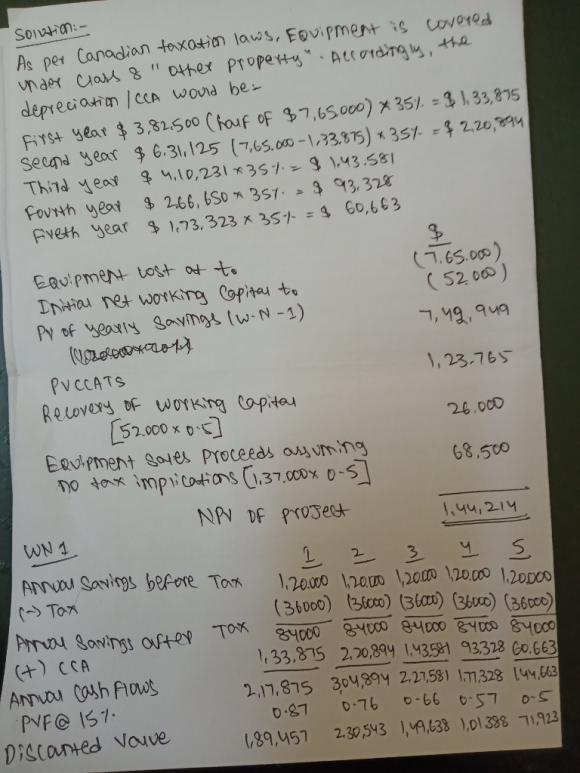 Solution:-
As per Canadian taxation laws, Equipment is covered
under Class 8 "Other property". Accordingly, the
depreciation / CCA would be:-
First year $ 3,82,500 (half of $7,65,000) * 35% = $ 1,33,875
Second year $ 6,31,125 (7,65,000 - 1,33,875) * 35% = $ 2,20,894
Third year $ 4,10,231 * 35% = $ 1,43,581
Fourth year $ 266,650 * 35% = $ 93,328
Fifeth year $ 1,73,323 * 35% = $ 60,663
$
Equipment cost at to (7,65,000)
Initial net working Capital to (52,000)
PV of yearly savings (W-N-1) 7,42,949
PVCCATS 1,23,765
Recovery of working Capital 26,000
[52,000 x 0.5]
Equipment Sales Proceeds assuming 68,500
no tax implications [1,37,000 x 0.5]
NPV of project 1,44,214
WN 1
1 2 3 4 5
Annual Savings before Tax 1,20,000 1,20,000 1,20,000 1,20,000 1,20,000
(-) Tax (36000) (36000) (36000) (36000) (36000)
Annual Savings after Tax 84000 84000 84000 84000 84000
(+) CCA 1,33,875 2,20,894 1,43,581 93,328 60,663
Annual Cash Flows 2,17,875 3,04,894 2,27,581 1,77,328 1,44,663
PVF @ 15% 0.87 0.76 0.66 0.57 0.5
Discounted Value 1,89,457 2,30,543 1,49,638 1,01,388 71,923